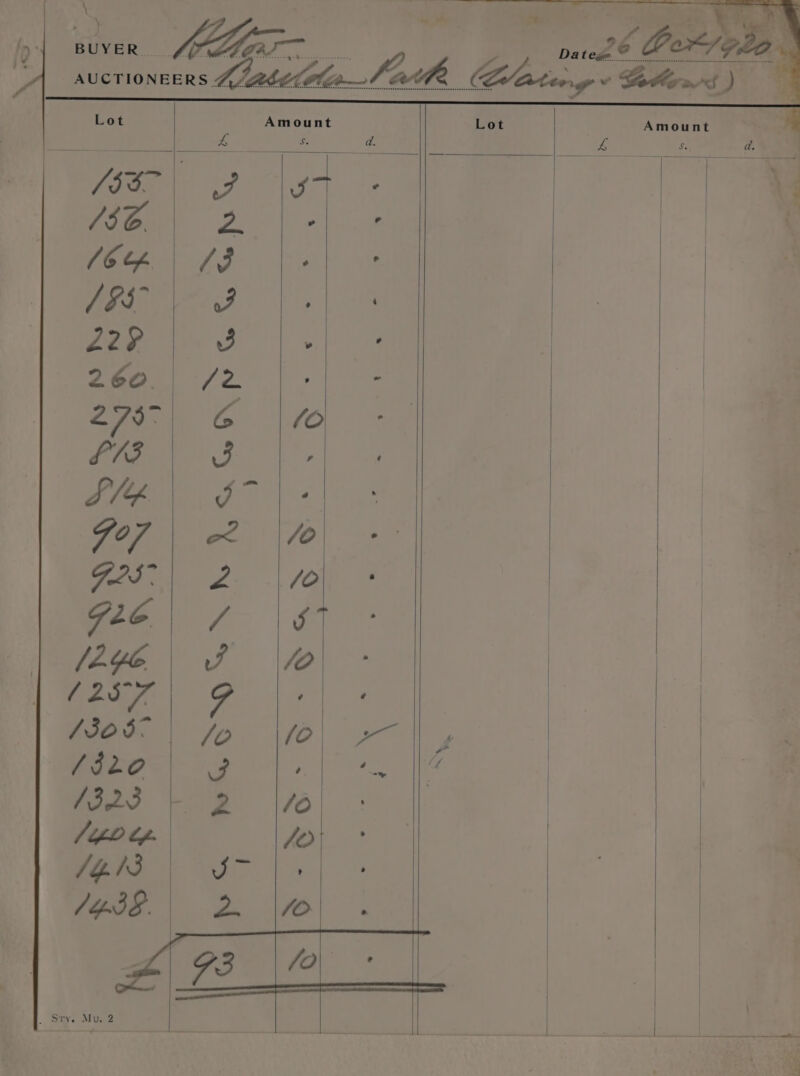 BUYER
Date 26 Oct 1920
AUCTIONEERS Park (Waring & Gillows)
Lot Amount Lot Amount
£ s. d. £ s. d.
135 3 5 "
136 2 " "
164 13 " "
185 3 " "
228 3 " "
260 12 " "
275 6 10 "
813 3 " "
814 5 " "
907 2 10 "
925 2 10 "
926 1 5 "
1246 3 10 "
1257 9 " "
1305 10 10 "
1320 3 " "
1323 2 10 "
1404 10 "
1413 5 " "
1438 2 10 "
£ 93 10 "
Sry. Mu. 2